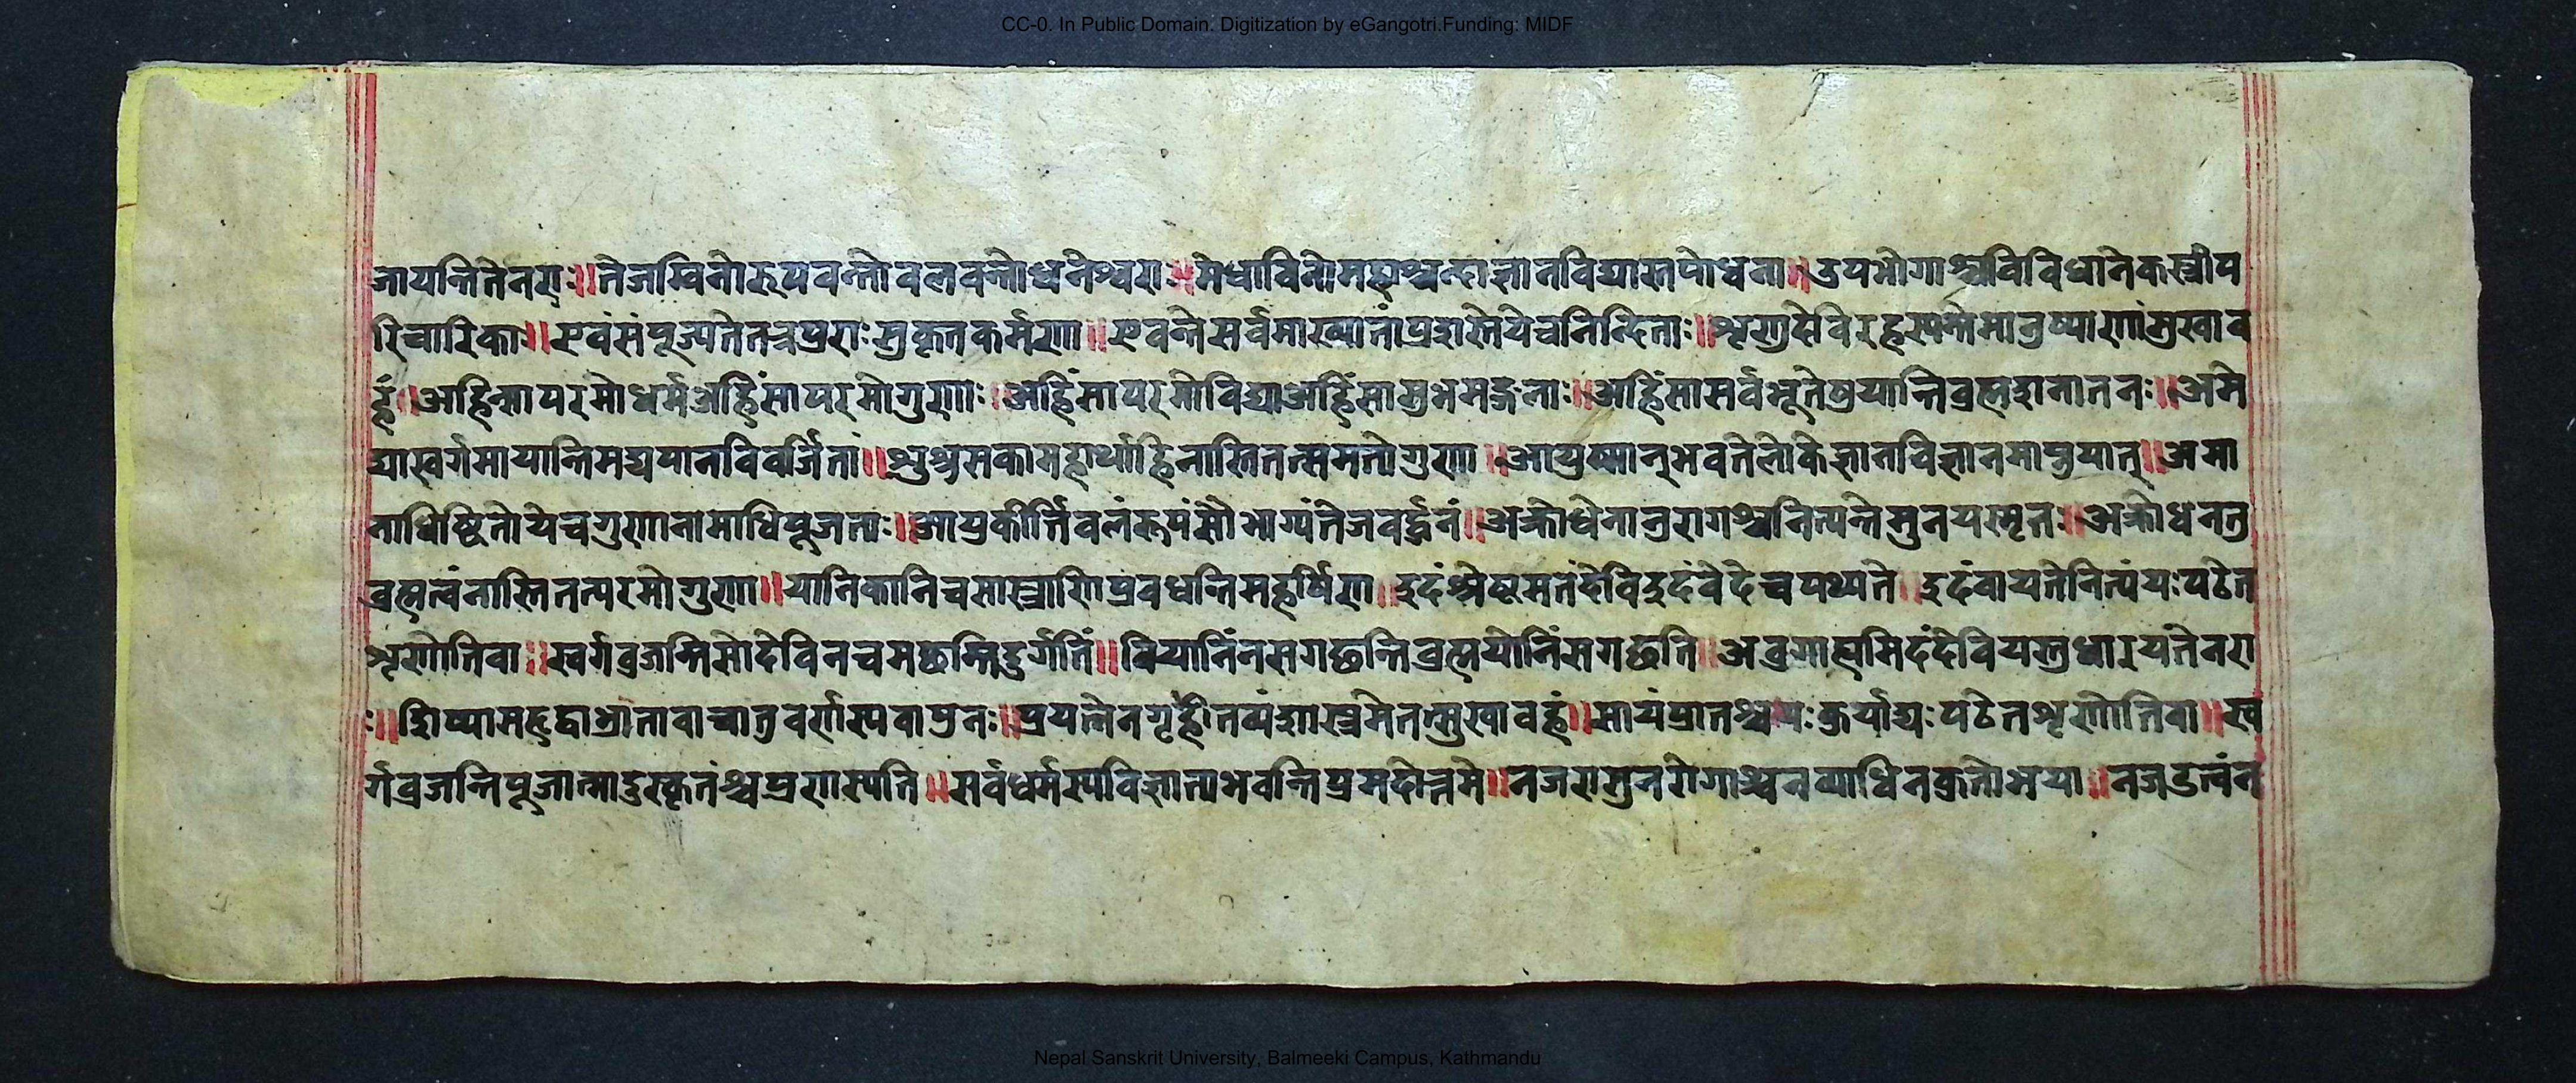 CC-0. In Public Domain. Digitization by eGangotri.Funding: MIDF
जायन्तितेनराः॥तेजस्विनोरूपवन्तोवलवन्तोधनेश्वरा॥मेधाविनोमहाश्चन्दाज्ञानविद्यास्तपोधना॥उपभोगाश्चविविधानेकस्त्रीप
रिचारिका॥एवंसंपूज्यतेतत्रप्रराःसुकृतकर्मणा॥एवन्तेसर्वमाख्यातांप्रशस्तेयेचनिन्दिताः॥शृणुदेविरहस्यन्तेमानुष्याणांसुखाव
हं॥अहिन्सापरमोधर्मअहिंसापरमोगुणाः॥अहिंसापरमोविद्याअहिंसासुभमङ्गलाः॥अहिंसासर्वभूतेषुयान्तिव्रह्मशनातनः॥अमे
द्यास्वर्गमायान्तिमद्यपानविवर्जितां॥शुश्रुसकामहार्थाहिनास्तितत्समतोगुणा॥आयुष्मान्भवतेलोकेज्ञानविज्ञानमाप्नुयात्॥अमा
नाधिष्ठितोयेचगुणानामाधिपूजताः॥आयुकीर्त्तिवलंरूपंसौभाग्यंतेजवर्द्धनं॥अक्रोधेनानुरागश्चनित्यन्तेमुनयस्मृत॥अक्रोधनतु
व्रह्मत्वंनास्तितत्परमोगुणा॥यानिकानिचसास्त्राणिप्रवधन्तिमहर्षिणा॥इदंश्रेष्टमतंदेविइदंवेदेचपथ्यते॥इदंवायतेनित्यंयःपठेत
शृणोतिवा॥स्वर्गव्रजन्तिसोदेविनचमछन्तिदुर्गतिं॥वियानिंनसगछन्तिव्रह्मयोनिंसगछति॥अव्रगाह्यमिदंदेवियस्तुधारयंतेनरा
ः॥शिष्यासहद्वाभ्रातावाचातुवर्णस्यवापुनः॥प्रयत्नेनगृहीतव्यंशास्त्रमेतत्सुखावहं॥सायंप्रातश्चयःकुर्याद्यःपठेतशृणोतिवा॥स्व
र्गव्रजन्तिपूजात्मादुस्कृतंश्चप्रणास्यति॥सर्वधर्मस्यविज्ञाताभवन्तिप्रमदोत्तमे॥नजरामृनरोगाश्चनव्याधिनक्रुतोभया॥नजडत्वंन
Nepal Sanskrit University, Balmeeki Campus, Kathmandu